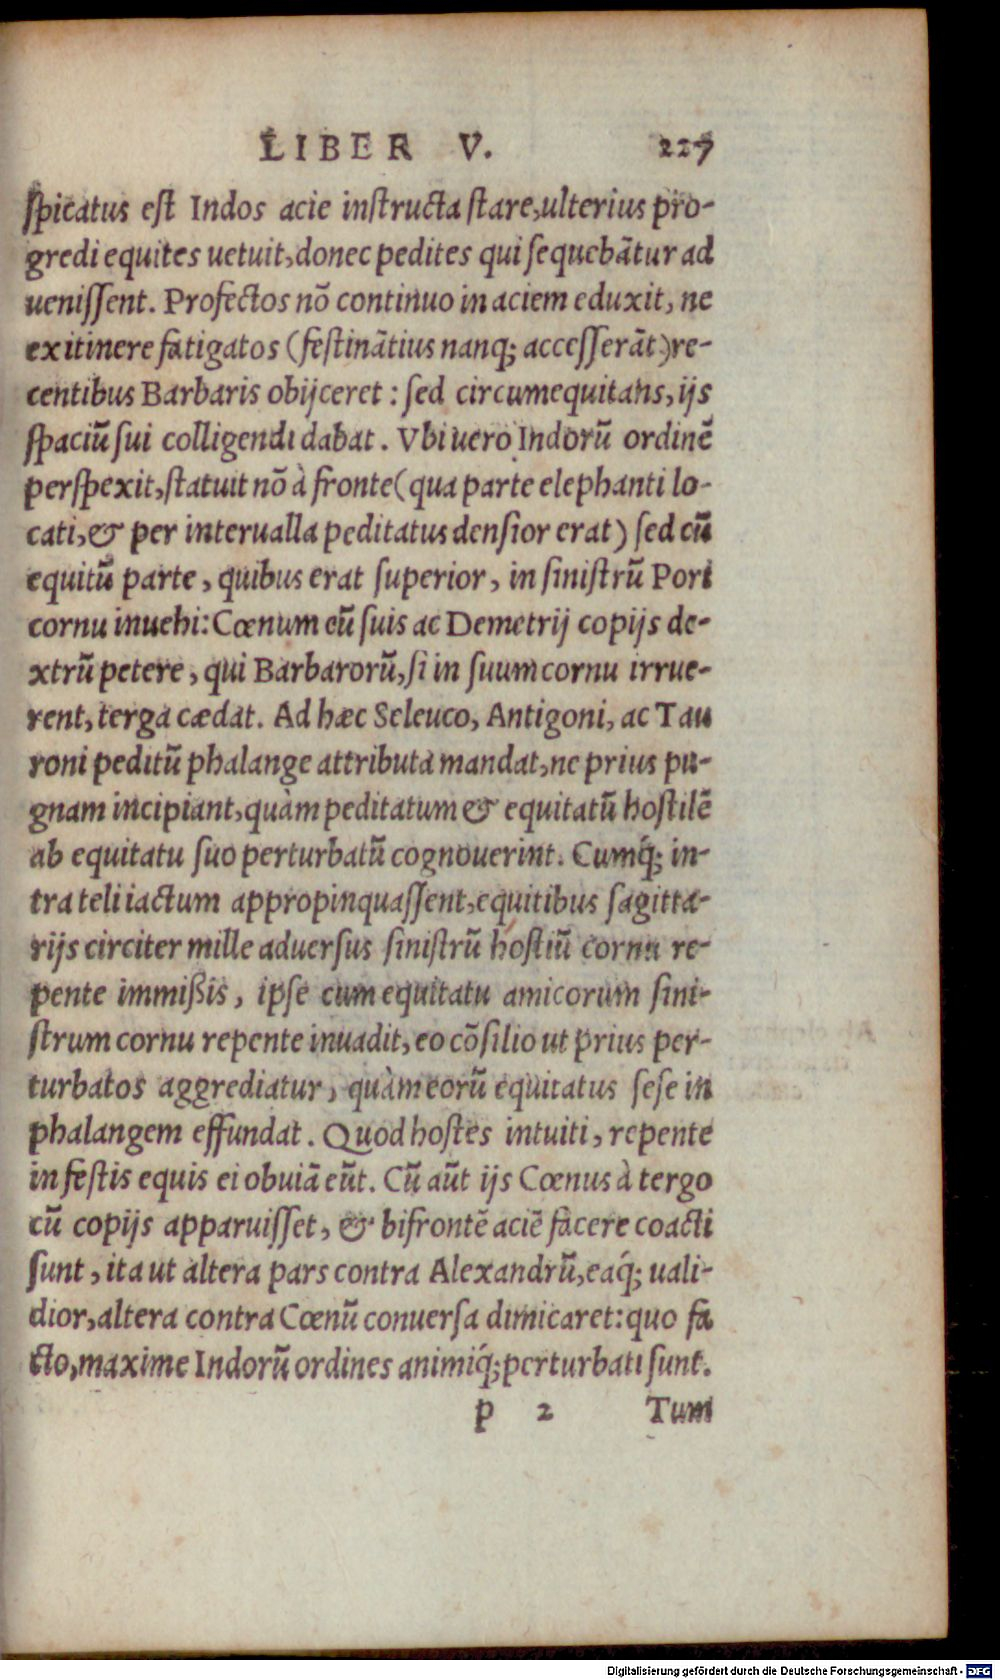 LIBER V. 227
ſpicatus eſt Indos acie inſtructa ſtare, ulterius pro-
gredi equites uetuit, donec pedites qui ſequebātur ad
ueniſſent. Profectos nō continuo in aciem eduxit, ne
ex itinere fatigatos (feſtinātius nanq; acceſſerāt) re-
centibus Barbaris obijceret: ſed circumequitans, ijs
ſpaciū ſui colligendi dabat. Vbi uero Indorū ordinē
perſpexit, ſtatuit nō à fronte (qua parte elephanti lo-
cati, & per interualla peditatus denſior erat) ſed cū
equitū parte, quibus erat ſuperior, in ſiniſtrū Pori
cornu inuehi: Cœnum cū ſuis ac Demetrij copijs de-
xtrū petere, qui Barbarorū, ſi in ſuum cornu irrue-
rent, terga cædat. Ad hæc Seleuco, Antigoni, ac Tau
roni peditū phalange attributa mandat, ne prius pu-
gnam incipiant, quàm peditatum & equitatū hoſtilē
ab equitatu ſuo perturbatū cognouerint. Cumq́; in-
tra teli iactum appropinquaſſent, equitibus ſagitta-
rijs circiter mille aduerſus ſiniſtrū hoſtiū cornu re-
pente immißis, ipſe cum equitatu amicorum ſini-
ſtrum cornu repente inuadit, eo cōſilio ut prius per-
turbatos aggrediatur, quàm eorū equitatus ſeſe in
phalangem effundat. Quod hoſtes intuiti, repente
infeſtis equis ei obuiā eūt. Cū aūt ijs Cœnus à tergo
cū copijs apparuiſſet, & bifrontē aciē facere coacti
ſunt, ita ut altera pars contra Alexandrū, eaq́; uali-
dior, altera contra Cœnū conuerſa dimicaret: quo fa
cto, maxime Indorū ordines animiq́; perturbati ſunt.
p 2 Tum
Digitalisierung gefördert durch die Deutsche Forschungsgemeinschaft - DFG